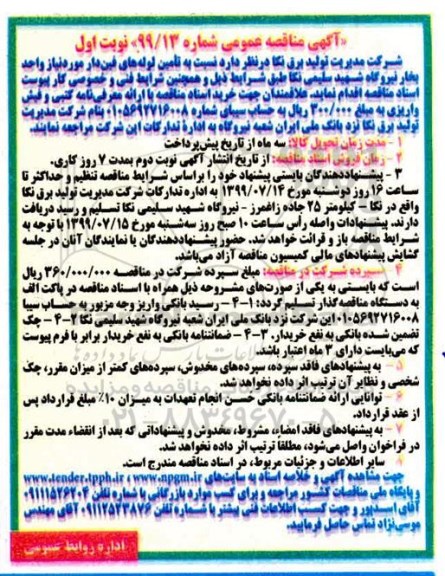 «آگهی مناقصه عمومی شماره ۹۹/۱۳» نوبت اول
شرکت مدیریت تولید برق نکا درنظر دارد نسبت به تأمین لوله‌های فین‌دار موردنیاز واحد
بخار نیروگاه شهید سلیمی نکا طبق شرایط ذیل و همچنین شرایط فنی و خصوصی کار پیوست
اسناد مناقصه اقدام نماید. علاقمندان جهت خرید اسناد مناقصه با ارائه معرفی‌نامه کتبی و فیش
واریزی به مبلغ ۳۰۰/۰۰۰ ریال به حساب سیبای شماره ۰۱۰۵۶۹۲۷۱۶۰۰۸ بنام شرکت مدیریت
تولید برق نکا نزد بانک ملی ایران شعبه نیروگاه به اداره تدارکات این شرکت مراجعه نمایند.
۱ - مدت زمان تحویل کالا: سه ماه از تاریخ پیش‌پرداخت
۲ - زمان فروش اسناد مناقصه: از تاریخ انتشار آگهی نوبت دوم بمدت ۷ روز کاری.
۳ - پیشنهاددهندگان بایستی پیشنهاد خود را براساس شرایط مناقصه تنظیم و حداکثر تا
ساعت ۱۶ روز دوشنبه مورخ ۱۳۹۹/۰۷/۱۴ به اداره تدارکات شرکت مدیریت تولید برق نکا
واقع در نکا – کیلومتر ۲۵ جاده زاغمرز - نیروگاه شهید سلیمی نکا تسلیم و رسید دریافت
دارند. پیشنهادات واصله رأس ساعت ۱۰ صبح روز سه‌شنبه مورخ ۱۳۹۹/۰۷/۱۵ با توجه به
شرایط مناقصه باز و قرائت خواهد شد. حضور پیشنهاددهندگان یا نمایندگان آنان در جلسه
گشایش پیشنهادهای مالی کمیسیون مناقصه آزاد می‌باشد.
۴ - سپرده شرکت در مناقصه: مبلغ سپرده شرکت در مناقصه ۳۶۰/۰۰۰/۰۰۰ ریال
است که بایستی به یکی از صورتهای مشروحه ذیل همراه با اسناد مناقصه در پاکت الف
به دستگاه مناقصه گذار تسلیم گردد: ۱-۴ – رسید بانکی واریز وجه مزبور به حساب سیبا
۰۱۰۵۶۹۲۷۱۶۰۰۸ این شرکت نزد بانک ملی ایران شعبه نیروگاه شهید سلیمی نکا ۲-۴ - چک
تضمین شده بانکی به نفع خریدار. ۳-۴ - ضمانتنامه بانکی به نفع خریدار برابر با فرم پیوست
که می‌بایست دارای ۳ ماه اعتبار باشد.
۵ - به پیشنهادهای فاقد سپرده، سپرده‌های مخدوش، سپرده‌های کمتر از میزان مقرر، چک
شخصی و نظایر آن ترتیب اثر داده نخواهد شد.
۶ - توانایی ارائه ضمانتنامه بانکی حسن انجام تعهدات به میزان ۱۰٪ مبلغ قرارداد پس از
از عقد قرارداد.
۷ - به پیشنهادهای فاقد امضاء، مشروط، مخدوش و پیشنهاداتی که بعد از انقضاء مدت مقرر
در فراخوان واصل می‌شود، مطلقاً ترتیب اثر داده نخواهد شد.
سایر اطلاعات و جزئیات مربوط، در اسناد مناقصه مندرج است.
جهت مشاهده آگهی و خلاصه اسناد به سایت‌های www.npgm.ir ، www.tender.tpph.ir
و پایگاه ملی مناقصات کشور مراجعه و برای کسب موارد بازرگانی با شماره تلفن ۰۹۱۱۱۵۲۶۲۰۴
آقای اسدپور و جهت کسب اطلاعات فنی بیشتر با شماره تلفن ۰۹۱۱۲۵۲۳۸۷۶ آقای مهندس
موسی‌نژاد تماس حاصل فرمایید.
اداره روابط عمومی